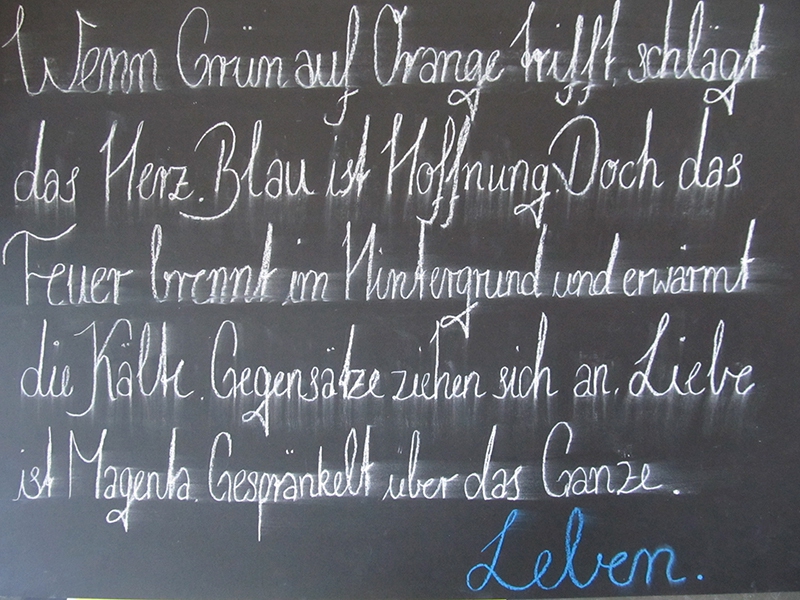 Wenn Grün auf Orange trifft, schlägt
das Herz. Blau ist Hoffnung. Doch das
Feuer brennt im Hintergrund und erwärmt
die Kälte. Gegensätze ziehen sich an. Liebe
ist Magenta. Gespränkelt über das Ganze.
Leben.